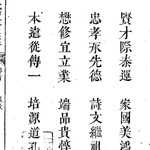 賢才際泰運 家國美鴻
忠孝承先德 詩文繼祖
懋修宜立業 端品貴
本遠從傳一 培源道孔